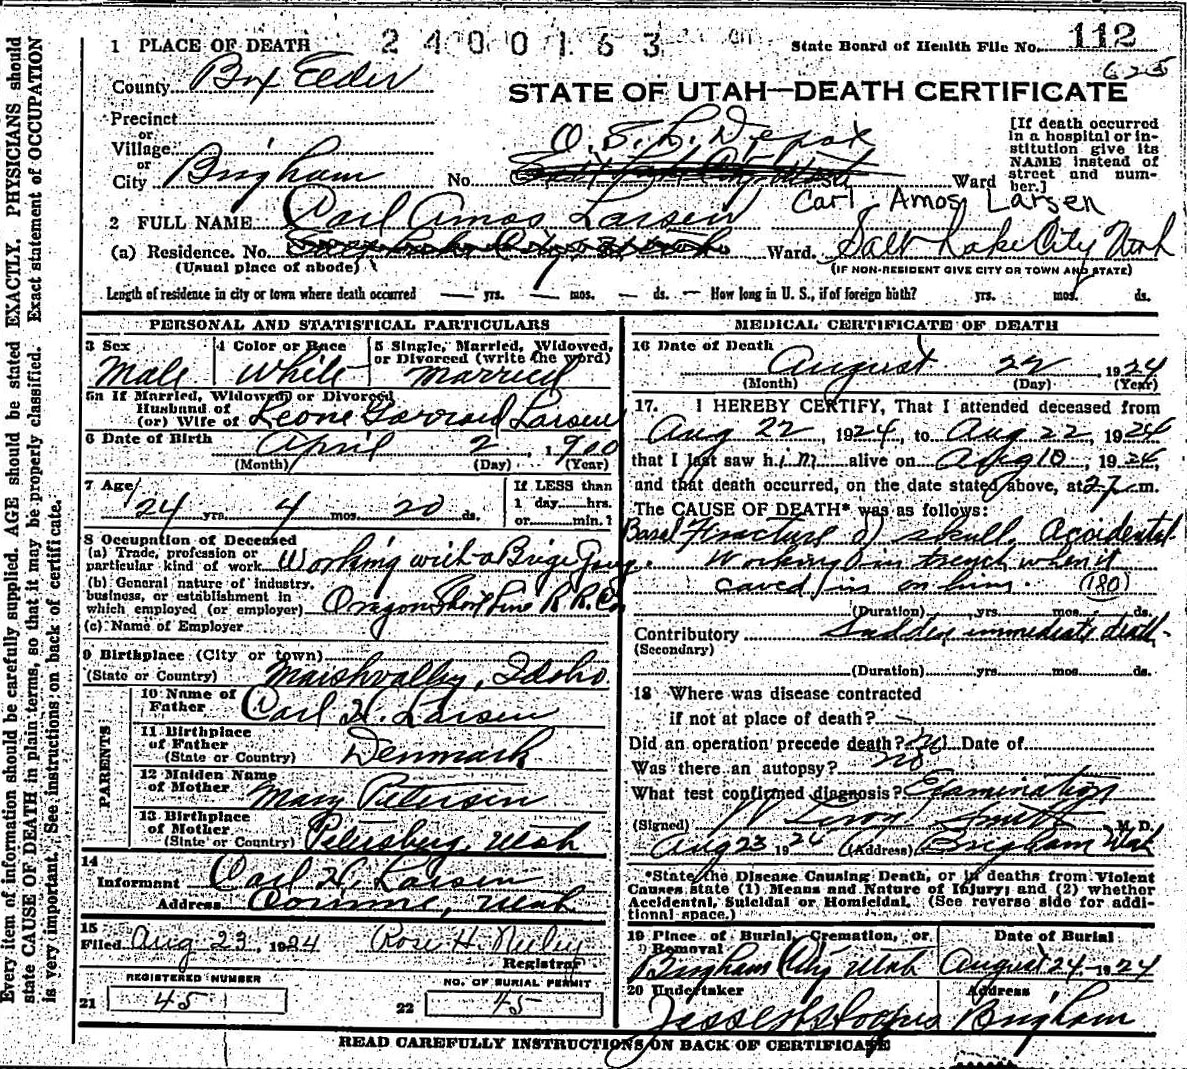 Every item of information should be carefully supplied. AGE should be stated EXACTLY. PHYSICIANS should
state CAUSE OF DEATH in plain terms, so that it may be properly classified. Exact statement of OCCUPATION
is very important. See instructions on back of certificate.
1 PLACE OF DEATH 2400163 State Board of Health File No. 112
County Box Elder 625
STATE OF UTAH—DEATH CERTIFICATE
Precinct
or
Village
or
City Brigham No. O. S. L. Depot Ward
[If death occurred
in a hospital or in-
stitution give its
NAME instead of
street and num-
ber.]
2 FULL NAME Carl Amos Larsen Carl Amos Larsen
(a) Residence. No. Ward. Salt Lake City Utah
(Usual place of abode) (IF NON-RESIDENT GIVE CITY OR TOWN AND STATE)
Length of residence in city or town where death occurred — yrs. — mos. — ds. — How long in U. S., if of foreign birth? yrs. mos. ds.
PERSONAL AND STATISTICAL PARTICULARS
3 Sex 4 Color or Race 5 Single, Married, Widowed,
or Divorced (write the word)
Male White Married
5a If Married, Widowed, or Divorced
Husband of
(or) Wife of Leone Garrard Larsen
6 Date of Birth April 2, 1900
(Month) (Day) (Year)
7 Age 24 yrs. 4 mos. 20 ds.
If LESS than
1 day hrs.
or min.?
8 Occupation of Deceased
(a) Trade, profession or
particular kind of work Working with a Brige Gang
(b) General nature of industry,
business, or establishment in
which employed (or employer) Oragon Short Line R. R. Co
(c) Name of Employer
9 Birthplace (City or town)
(State or Country) Marshvalley, Idaho
PARENTS
10 Name of
Father Carl H. Larsen
11 Birthplace
of Father
(State or Country) Denmark
12 Maiden Name
of Mother Mary Petersen
13 Birthplace
of Mother
(State or Country) Petersberg, Utah
14
Informant Carl H. Larsen
Address Corinne, Utah
15
Filed Aug 23, 1924 Rose H. Neeley
Registrar
REGISTERED NUMBER NO. OF BURIAL PERMIT
21 45 22 45
MEDICAL CERTIFICATE OF DEATH
16 Date of Death August 22 1924
(Month) (Day) (Year)
17. I HEREBY CERTIFY, That I attended deceased from
Aug 22, 1924, to Aug 22, 1924
that I last saw him alive on Aug 10, 1924,
and that death occurred, on the date stated above, at 2 P. m.
The CAUSE OF DEATH* was as follows:
Basal Fracture of skull. Accidental.
Working in trench when it
caved in on him. (180)
(Duration) yrs. mos. ds.
Contributory Sudden immediate death.
(Secondary)
(Duration) yrs. mos. ds.
18 Where was disease contracted
if not at place of death? —
Did an operation precede death? No Date of
Was there an autopsy? no
What test confirmed diagnosis? Examination
(Signed) W Leroy Smith M. D.
Aug 23 1924 (Address) Brigham Utah
*State the Disease Causing Death, or in deaths from Violent
Causes state (1) Means and Nature of Injury; and (2) whether
Accidental, Suicidal or Homicidal. (See reverse side for addi-
tional space.)
19 Place of Burial, Cremation, or
Removal Date of Burial
Brigham City Utah August 24, 1924
20 Undertaker Address
Brigham
READ CAREFULLY INSTRUCTIONS ON BACK OF CERTIFICATE